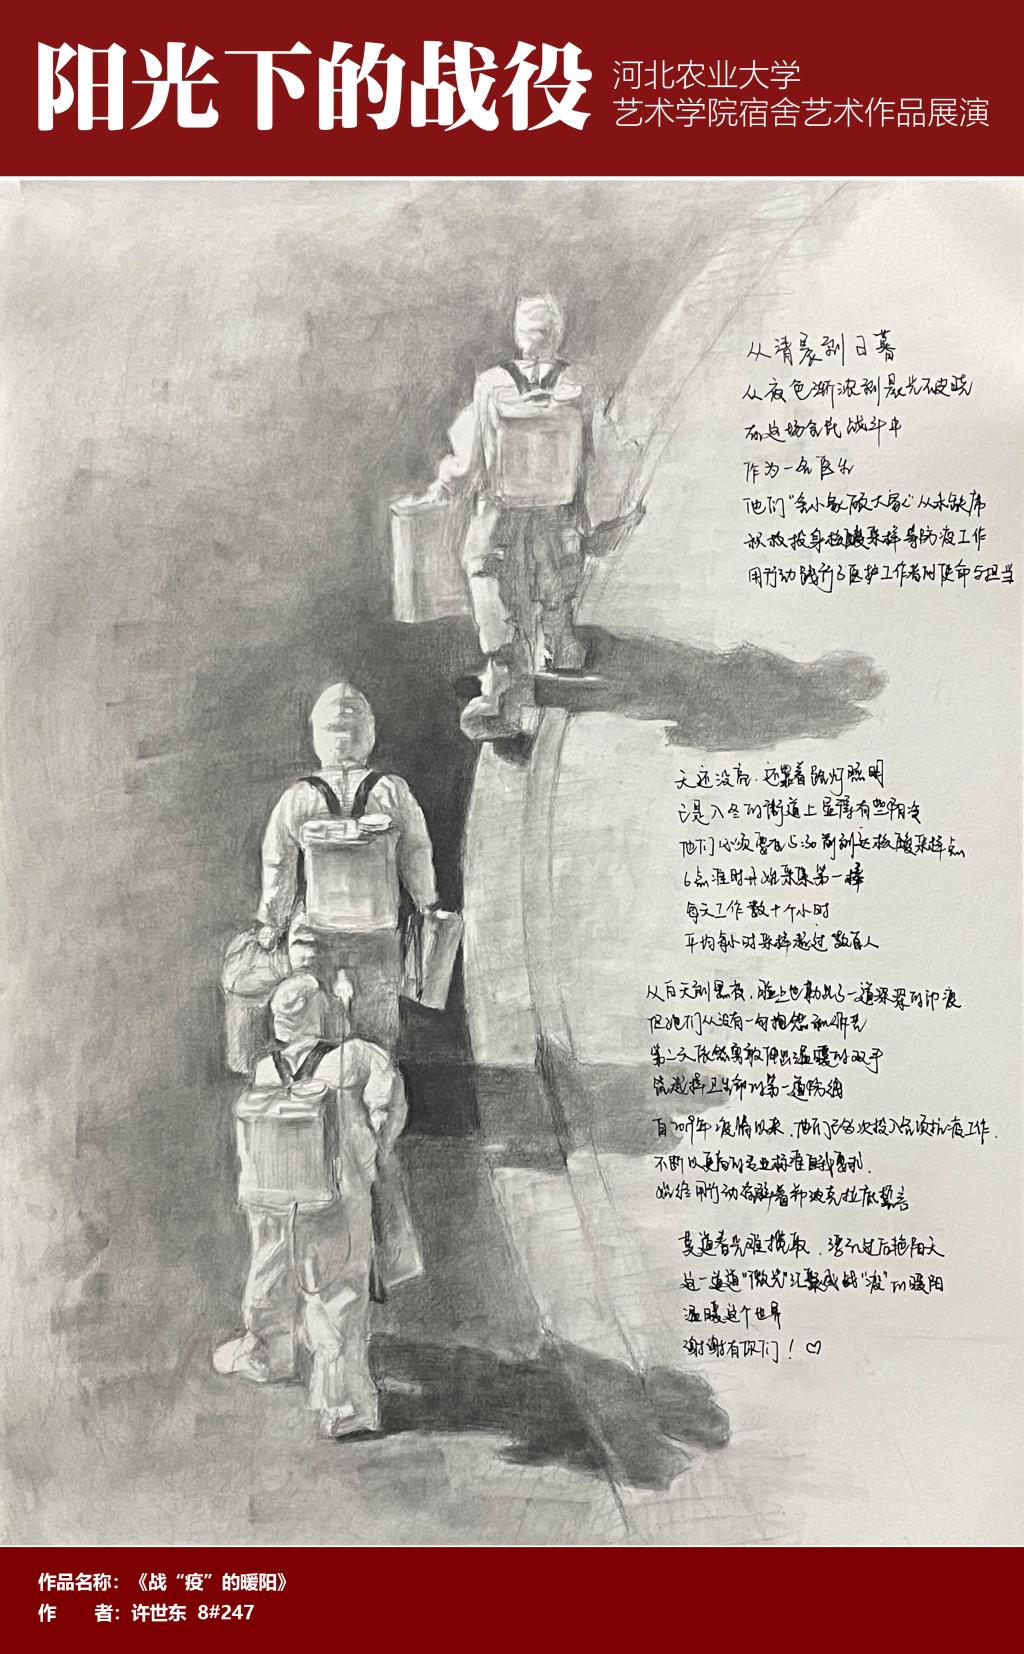 阳光下的战役
河北农业大学
艺术学院宿舍艺术作品展演
从清晨到日暮
从夜色渐浓到晨光破晓
在这场全民战斗中
作为一名医生
他们“舍小家顾大家”从未缺席
积极投身核酸采样等防疫工作
用行动践行了医护工作者的使命与担当
天还没亮，还靠着路灯照明
已是入冬的街道上显得有些阴冷
他们必须要在5:30前到达核酸采样点
6点准时开始采集第一棒
每天工作数十个小时
平均每小时采样超过数百人
从白天到黑夜，脸上也勒出了一道深深的印痕
但他们从没有一句抱怨和
第二天依然勇敢伸出温暖的双手
筑起捍卫生命的第一道防线
自2019年疫情以来，他们已多次投入各项抗疫工作，
不断以更高的专业标准自我要求，
始终用行动 着希波克拉底誓言
莫道春光难揽取，浮云过后艳阳天
这一道道“微光”汇聚成战“疫”的暖阳
温暖这个世界
谢谢有你们！♡
作品名称：《战“疫”的暖阳》
作 者：许世东 8#247